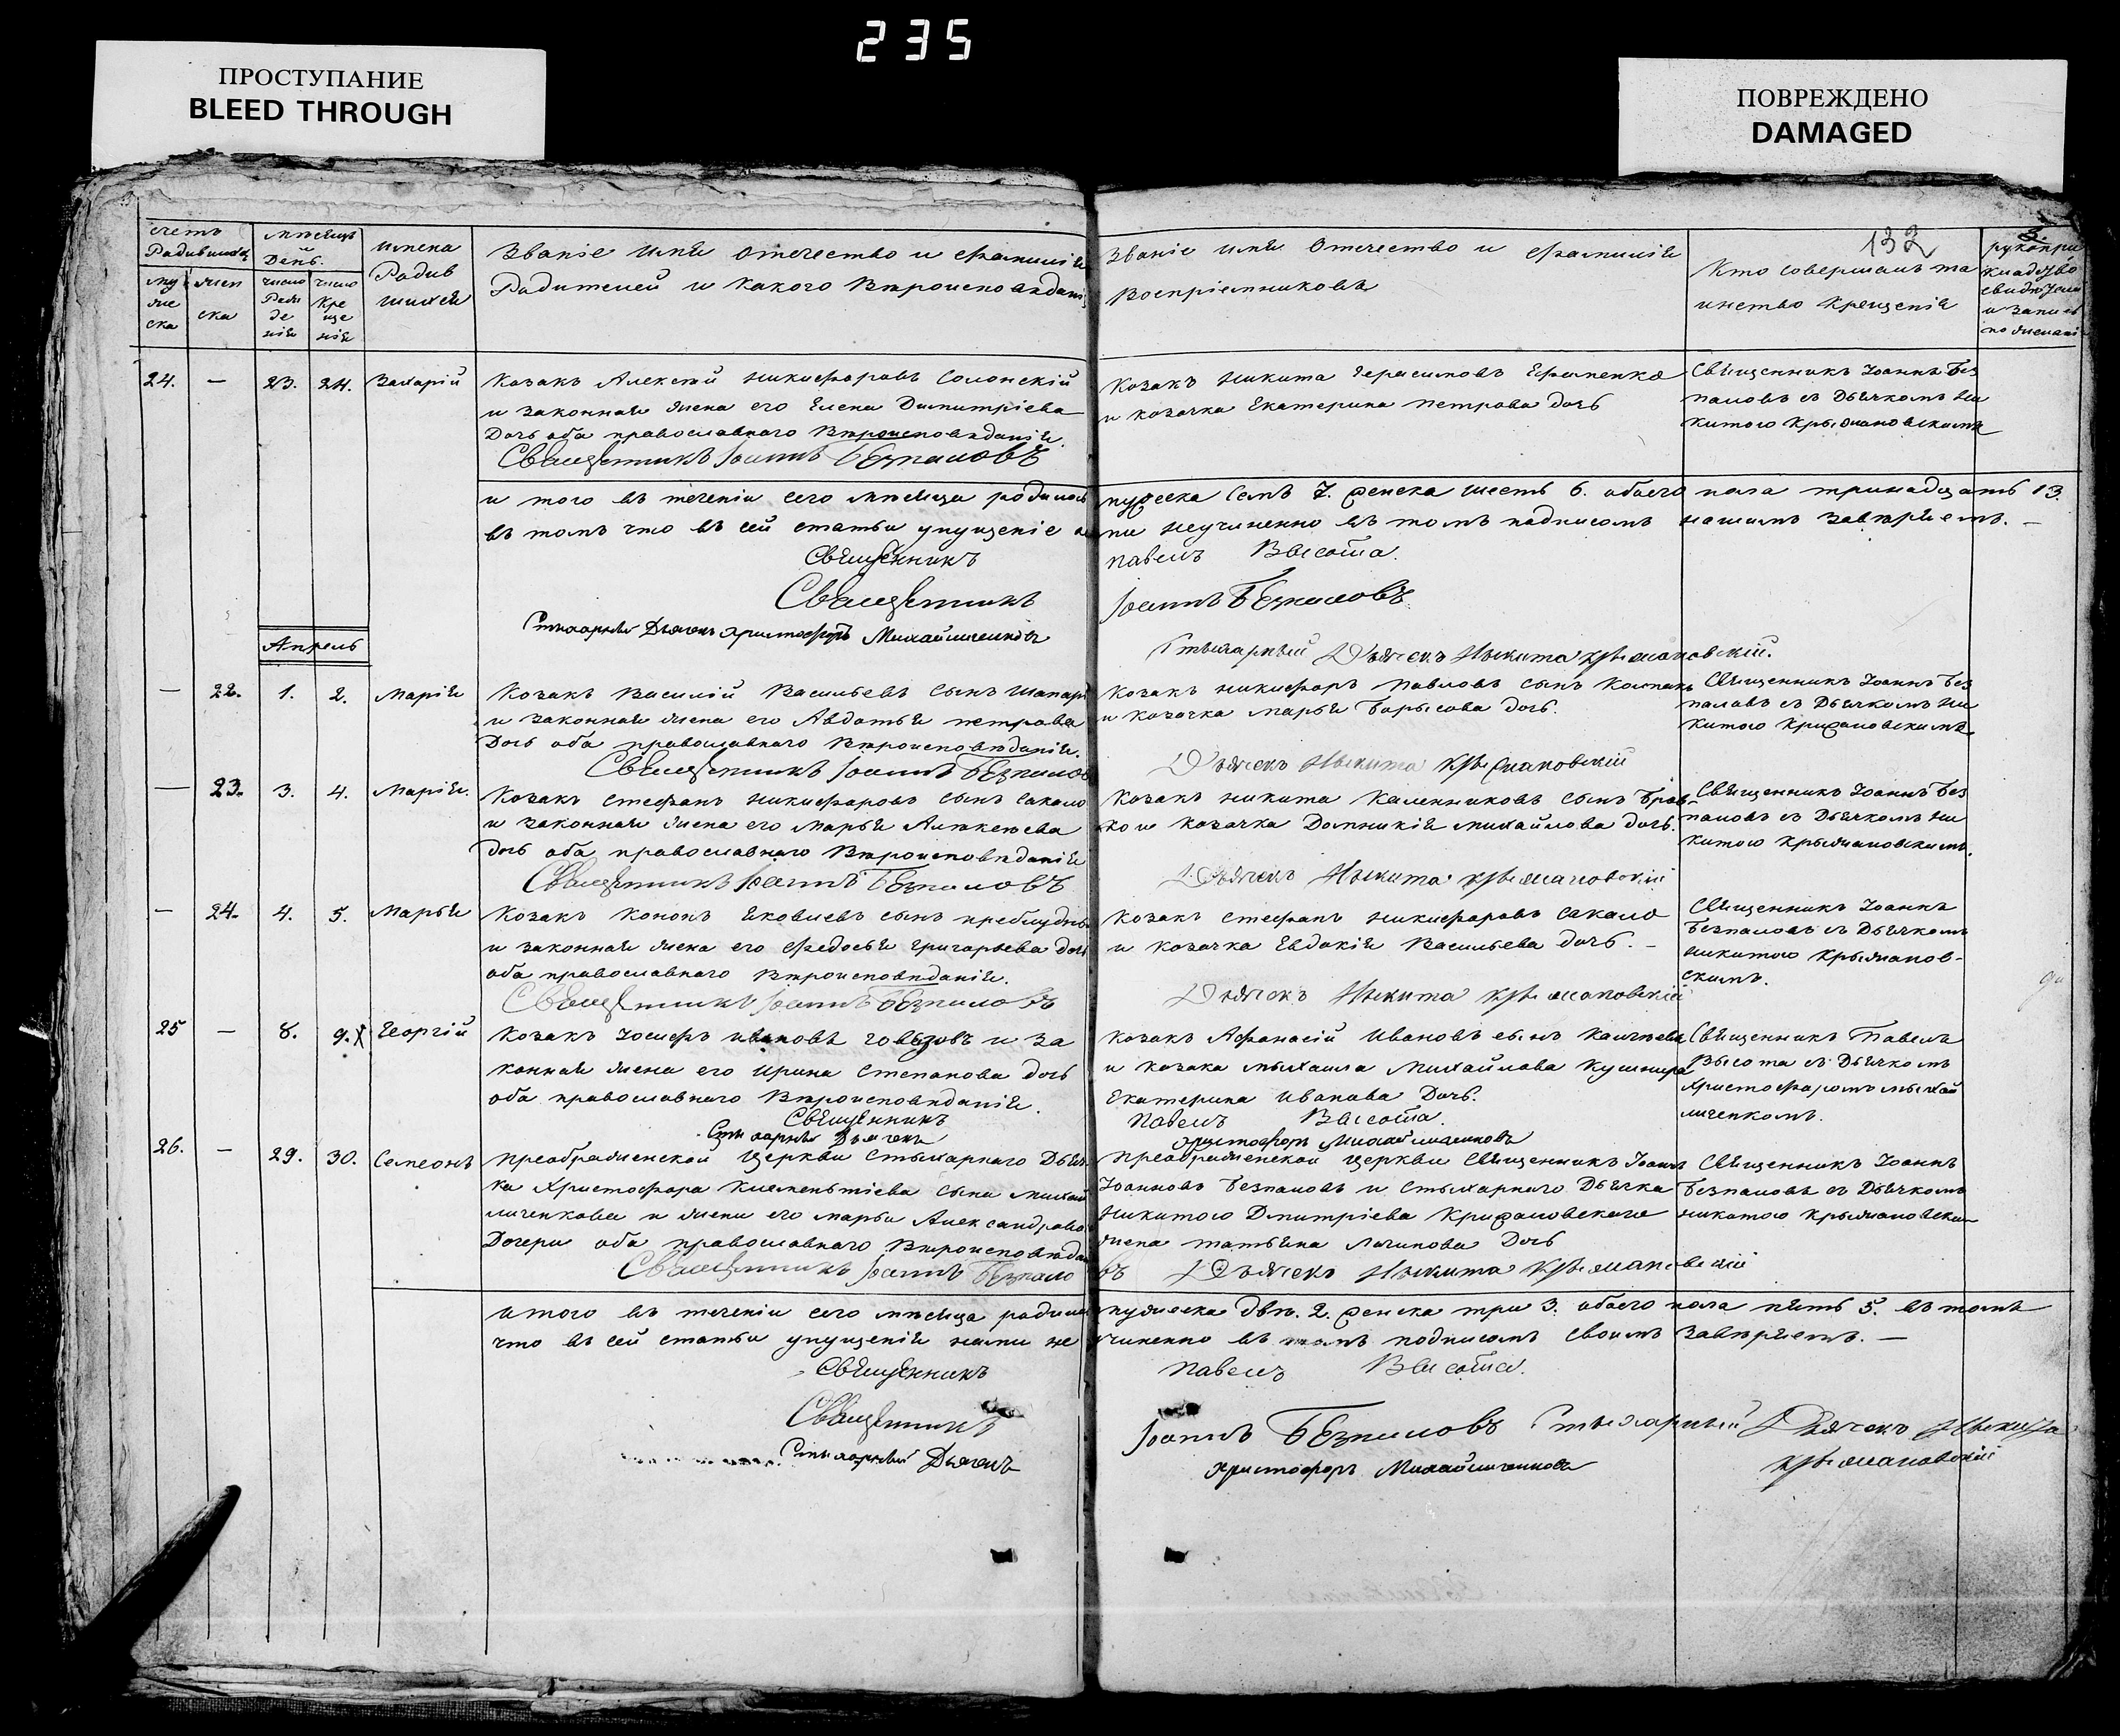 235
ПРОСТУПАНИЕ
BLEED THROUGH
ПОВРЕЖДЕНО
DAMAGED
132
счетъ Родившихся
му же ска
жен ска
мѣсяцъ и День.
число Рож де нія
число Кре ще нія
имена Родив шихся
Званіе имя отечество и фамилія
Родителей и какого Вѣроисповѣданія
Званіе имя отечество и фамилія
Воспріемниковъ
Кто совершалъ та
инство крещенія
рукопри
кладство
свидѣтелей
и запись
по желанію
24. — 23. 24. Захарій
Козакъ Алексѣй никифоровъ Солонскій
и законная жена его Елена Димитріева
Дочь оба православнаго Вѣроисповѣданія.
Священникъ Іоаннъ Безпаловъ
Козакъ никита Герасимовъ Ефименко
и козачка Екатерина петрова дочь
Священникъ Іоаннъ Без
паловъ съ Дьячкомъ Ни
китою Крыжановскимъ
итого въ теченіи сего мѣсяца родилось мужеска семь 7. женска шесть 6. обоего пола тринадцать 13.
въ томъ что въ сей статьи упущеніе неучиненно въ томъ подписомъ нашимъ завѣряемъ. —
Священникъ павелъ Высота.
Священникъ Іоаннъ Безпаловъ
Стихарный Дьячекъ Христофоръ Михайличенковъ
Стыхарный Дьячекъ Ныкита Крыжановскій.
Апрель
— 22. 1. 2. Марія
Козакъ Василій Васильевъ сынъ
и законная жена его Авдотья петрова
Дочь оба православнаго Вѣроисповѣданія.
Священникъ Іоаннъ Безпаловъ
Козакъ никифоръ павловъ сынъ
и козачка марья Борысова дочь.
Дьячекъ Ныкита Крыжановскій
Священникъ Іоаннъ Без
паловъ съ Дьячкомъ Ни
китою Крижановскимъ
— 23. 3. 4. Марія.
Козакъ стефанъ никифоровъ сынъ сакало
и законная жена его марья Алѣкѣева
дочь оба православнаго Вѣроисповѣданія
Священникъ Іоаннъ Безпаловъ
Козакъ никита Каленниковъ сынъ
и козачка Домникія михайлова дочь.
Дьячекъ Ныкита Крыжановскій
Священникъ Іоаннъ Без
паловъ съ Дьячкомъ Ни
китою Крыжановскимъ.
— 24. 4. 5. Марья
Козакъ Кононъ Яковлевъ сынъ
и законная жена его Федосья григорьева дочь
оба православнаго Вѣроисповѣданія.
Священникъ Іоаннъ Безпаловъ
Козакъ стефанъ никифоровъ сакало
и козачка Евдокія Васильева дочь. —
Дьячекъ Ныкита Крыжановскій
Священникъ Іоаннъ
Безпаловъ съ Дьячкомъ
никитою Крыжанов-
скимъ.
25 — 8. 9. Георгій
Козакъ Іосифъ ивановъ и за
конная жена его ирина степанова дочь
оба православнаго Вѣроисповѣданія.
Священникъ
Стихарный Дьячекъ
Козакъ Афанасій Ивановъ сынъ
и козака мыхаила Михайлова Кушнира
Екатерина иванова Дочь.
павелъ Высота.
Христофоръ Михайличенковъ
Священникъ Павелъ
Высота съ Дьячкомъ
Христофоромъ мыхай
личенкомъ.
26. — 29. 30. Симеонъ
преображенской церкви Стыхарнаго Дьяч
ка Христофора Климентіева сына михай
личенкова и жены его марьи Александровой
Дочери оба православнаго Вѣроисповѣданія
Священникъ Іоаннъ Безпаловъ
преображенской церкви Священникъ Іоаннъ
Іоанновъ Безпаловъ и Стыхарнаго Дьячка
Никитою Дмитріева Крижановскаго
жена татьяна Логинова Дочь
Дьячекъ Ныкита Крыжановскій
Священникъ Іоаннъ
Безпаловъ съ Дьячкомъ
никитою Крыжановскимъ
итого въ теченіи сего мѣсяца родилось мужеска двѣ. 2. женска три 3. обоего пола пять 5. въ томъ
что въ сей статьи упущенія нами не учиненно въ томъ подписомъ своимъ завѣряемъ. —
Священникъ павелъ Высота.
Священникъ Іоаннъ Безпаловъ Стыхарный Дьячекъ Ныкита
Крыжановскій
Стихарный Дьячекъ Христофоръ Михайличенковъ